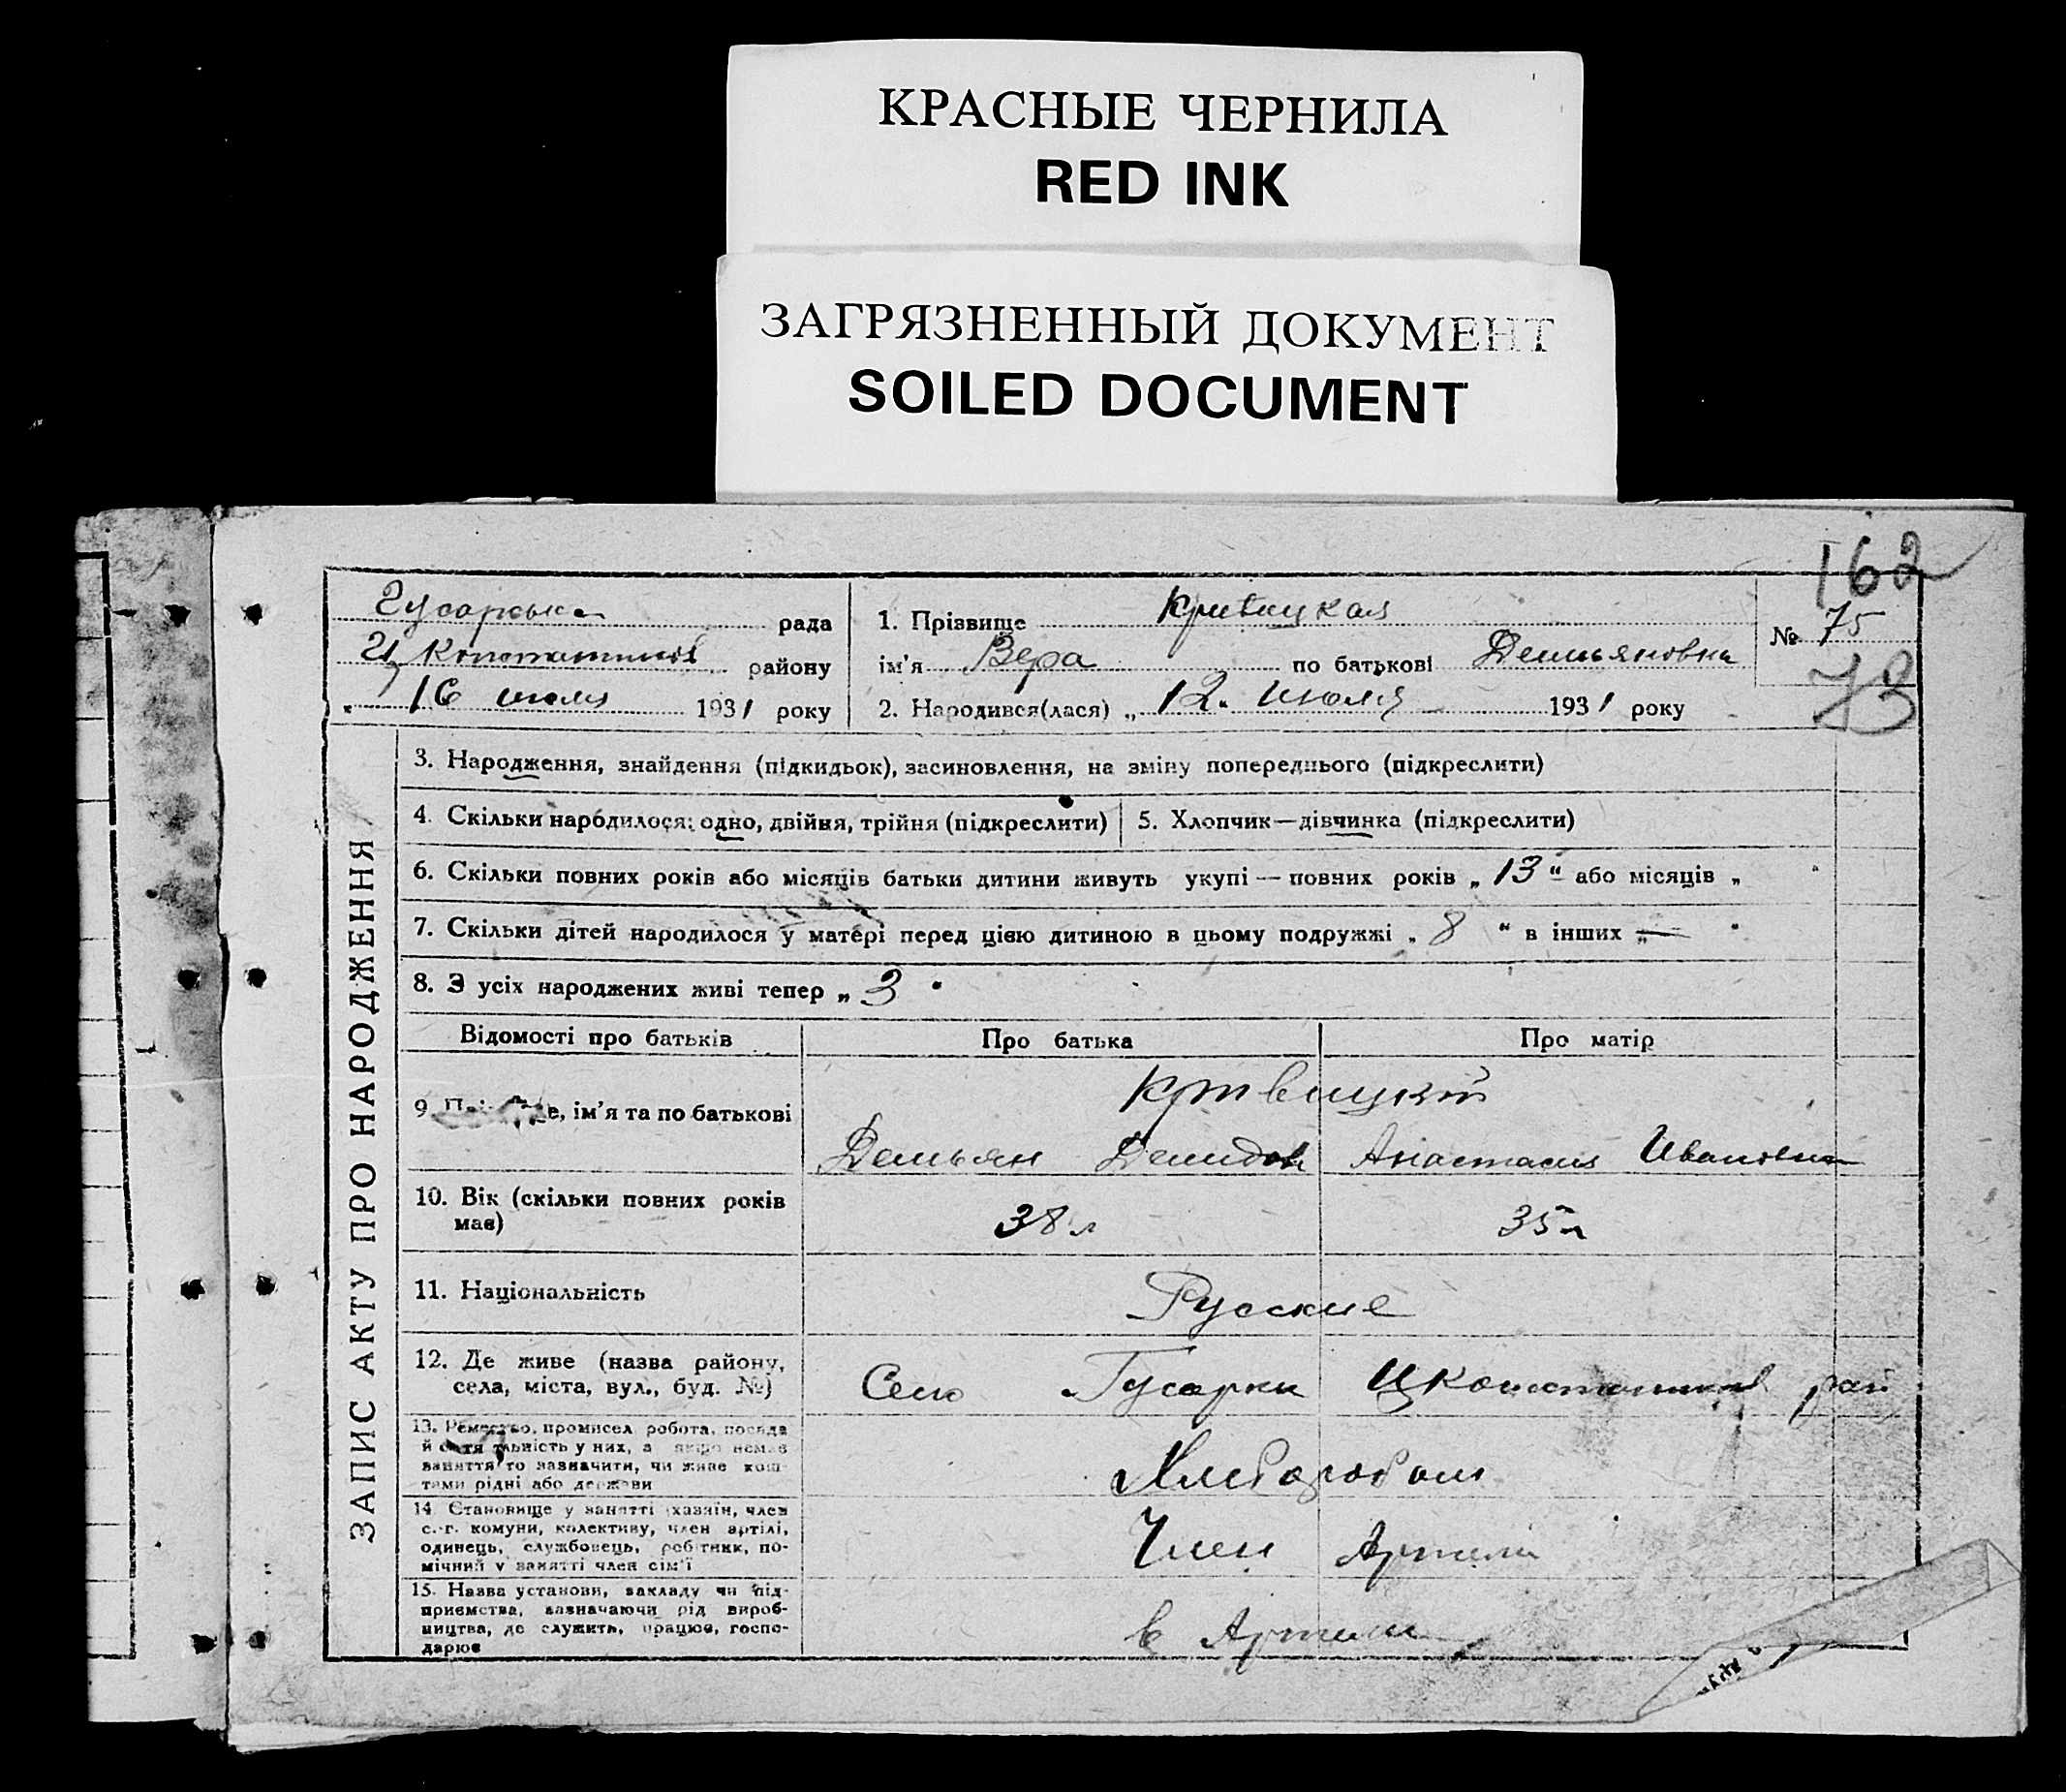 КРАСНЫЕ ЧЕРНИЛА
RED INK
ЗАГРЯЗНЕННЫЙ ДОКУМЕНТ
SOILED DOCUMENT
162
Гусарська рада
района
16 июля 1931 року
1. Прізвище Кривицкая
ім'я Вера по батькові Демьяновна
2. Народився(лася) „ 12. Июля 1931 року
№ 75
73
ЗАПИС АКТУ ПРО НАРОДЖЕННЯ
3. Народження, знайдення (підкидьок), засиновлення, на зміну попереднього (підкреслити)
4. Скільки народилося: одно, двійня, трійня (підкреслити)
5. Хлопчик—дівчинка (підкреслити)
6. Скільки повних років або місяців батьки дитини живуть укупі — повних років „ 13 " або місяців „ "
7. Скільки дітей народилося у матері перед цією дитиною в цьому подружжі „ 8 " в інших „ — "
8. З усіх народжених живі тепер „ 3 "
Відомості про батьків
Про батька
Про матір
9. е, ім'я та по батькові
Кривицкий
Демьян Демидов
Анастасия Ивановна
10. Вік (скільки повних років
має)
38 л
35 л
11. Національність
Русские
12. Де живе (назва району,
села, міста, вул., буд. №)
Село Гусарки рай
13. Ремество, промисел робота, посада
й у них, а якщо немає
заняття, то зазначити, чи живе кош-
тами рідні або держави
Хлебороботи
14. Становище у занятті (хазяїн, член
с.-г. комуни, колективу, член артілі,
одинець, службовець, робітник, по-
мічний у занятті член сім'ї
Член Артели
15. Назва установи, закладу чи під-
приємства, зазначаючи рід вироб-
ництва, де служить, працює, госпо-
дарює
в Артели